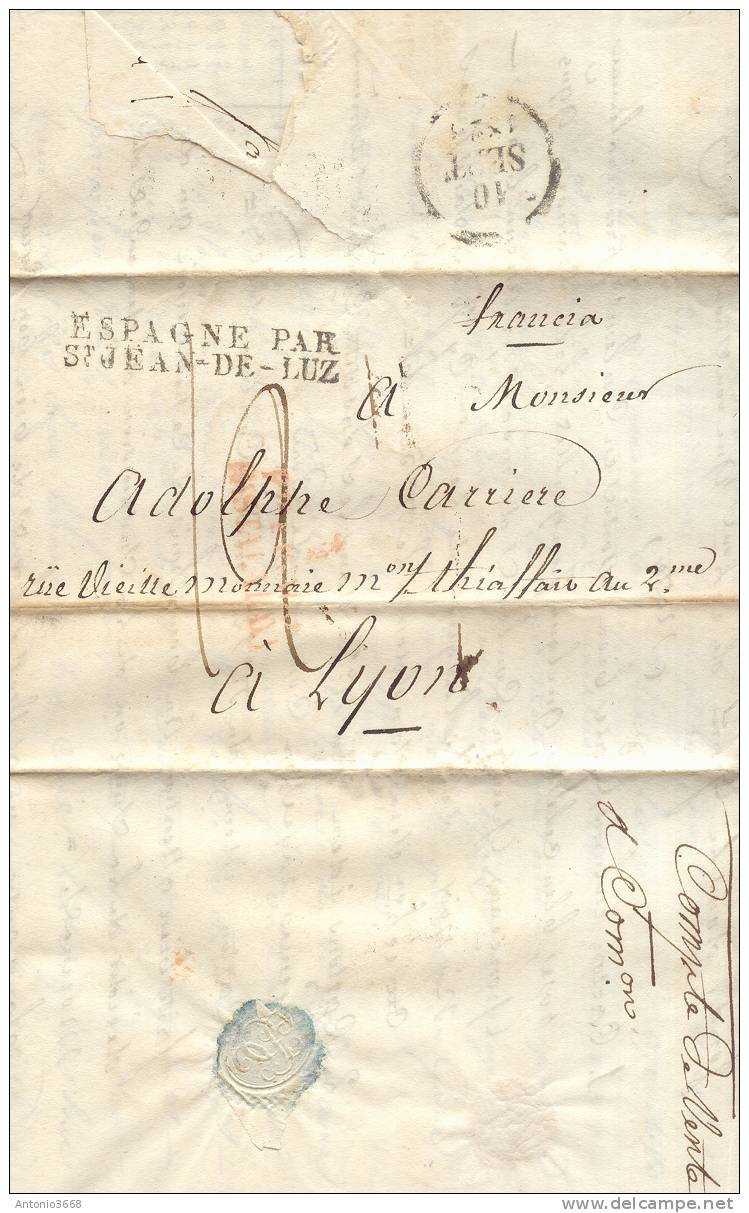 10
SEPT
ESPAGNE PAR
ST JEAN-DE-LUZ
francia
a Monsieur
Adolphe Carriere
rüe Vieille monnaie mon/ thiaffait au 2.me
à Lyon
Compte De Vente
d Comon
Antonio3668
www.delcampe.net